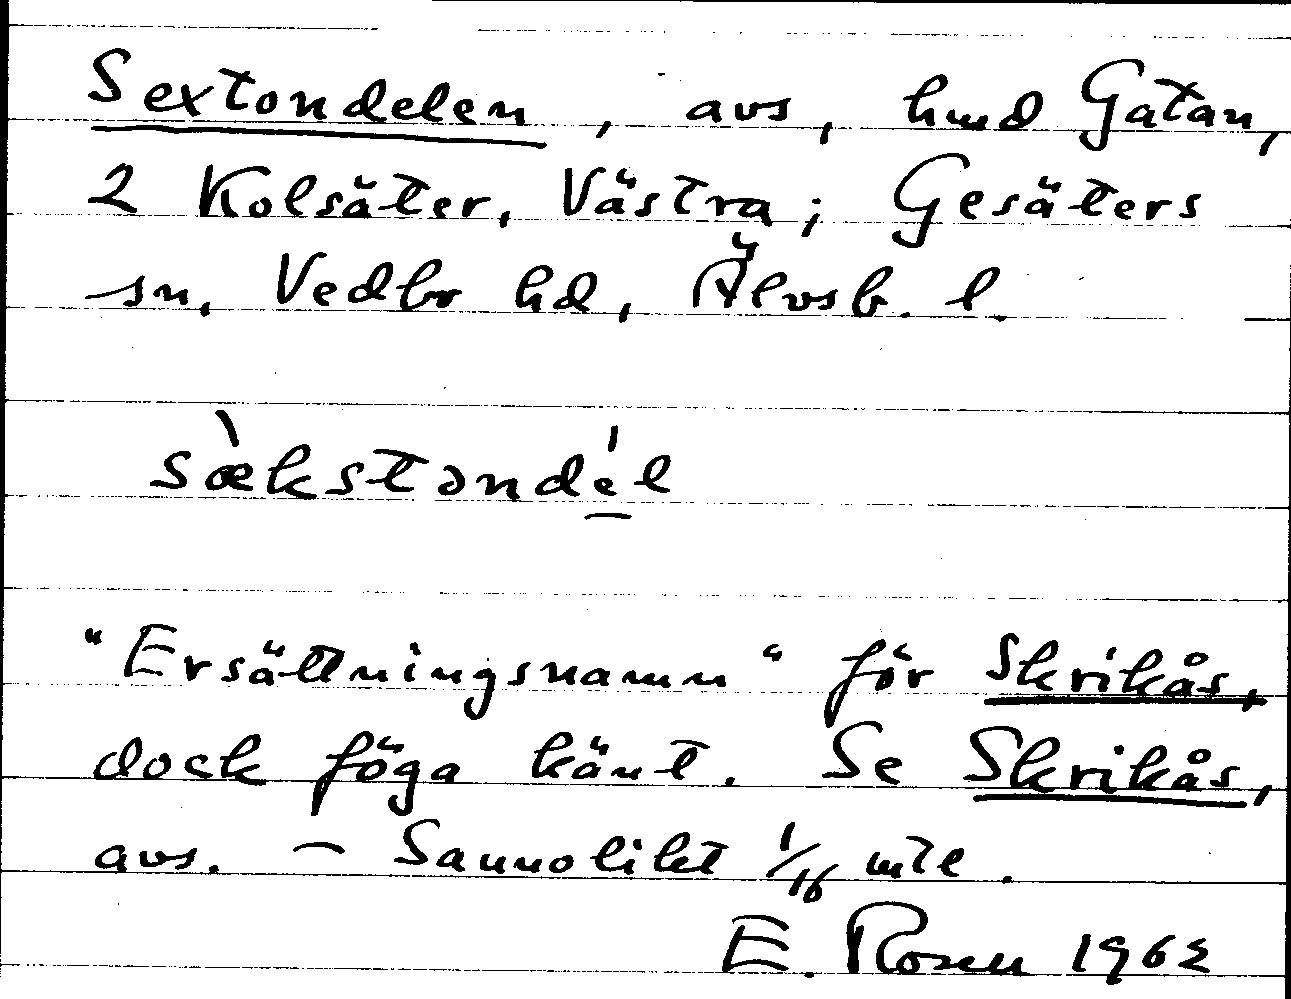 Sextondelen, avs, hmd Gatan,
2 Kolsäter, Västra; Gesäters
sn, Vedbo hd, Älvsb. l.
sæ̀kstəndé̱l
"Ersättningsnamn" för Skrikås,
dock föga känt. Se Skrikås,
avs. – Sannolikt 1/16 mtl.
E. Rosen 1962